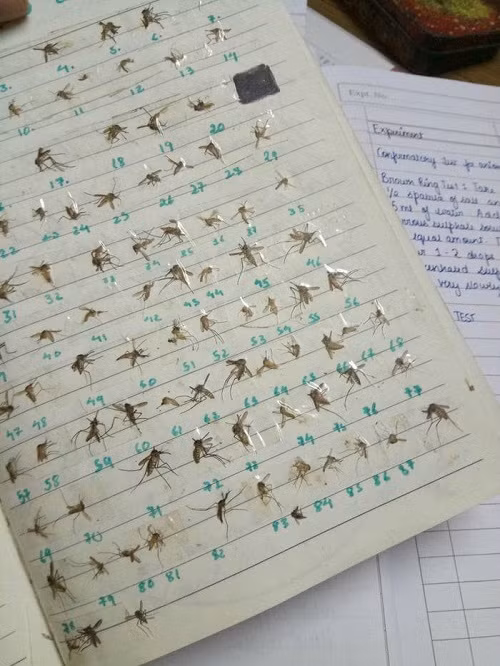 3. 4. 5. 6.
10. 11 12 13 14
17. 18 19 20
22 23 24 25 26 27 28 29
31 32 33 34 35 36 37
40 41 42 43 44 45 46
47 48 49 50 51 52 53 54 55 56
57 58 59 60 61 62 63 64 65 66 67 68
69 70 71 72 73 74 75 76 77
78 79 80 81 82 83 84 85 86 87
Expt. No.
Experiment
Confirmatory test for
Brown Ring Test : Take
5 ml of water
sulphate
equal amount
1-2 drops
very slowly
TEST